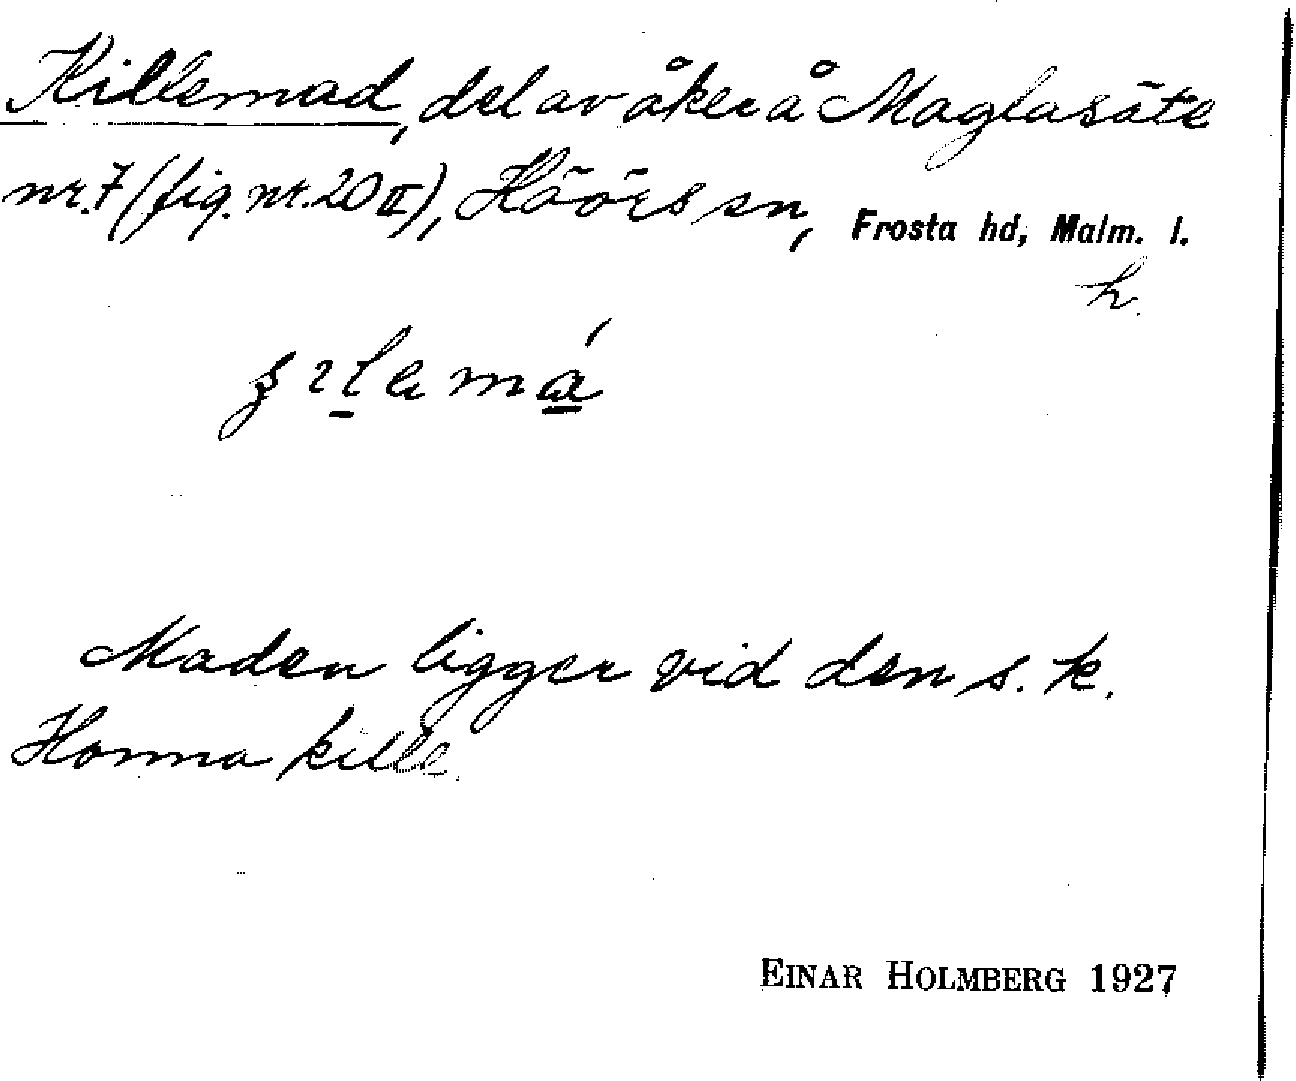 Killemad, del av åker å Maglasäte
nr. 7 (fig. nr. 20 II), Höörs sn, Frosta hd, Malm. l.
h.
Maden ligger vid den s. k.
Honna kille.
EINAR HOLMBERG 1927